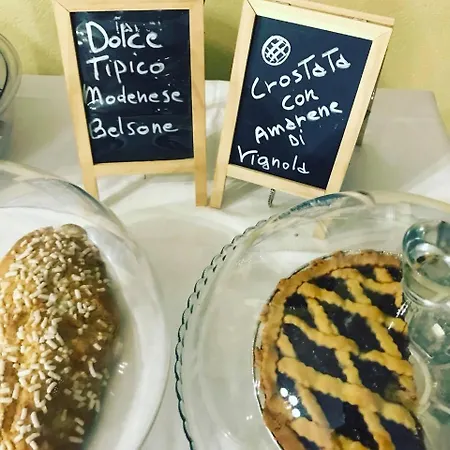 Dolce
Tipico
Modenese
Belsone
Crostata
con
Amarene
Di
Vignola